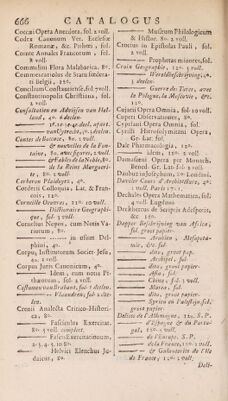 666 CATALOGUS
Cocaei Opera Anecdota, fol. 2 voll.
Codex Canonum Vet. Ecclesiæ
Romanæ, &c. Pithoei, fol.
Comte Annales Francorum, fol.
8 voll.
Commelini Flora Malabarica, 8º.
Commentarioles de Statu fœdera-
ti Belgii, 12º.
Concilium Constantiense, fol. 3 voll.
Constantinopolis Christiana, fol.
2 voll.
Consultatien en Advysen van Hol-
land, 4º. 6 deelen
van Utrecht, 4º. 2 deelen.
Contes de Boccace, 8º. 2 voll.
& nouvelles de la Fon-
taine, 8º. avec figures, 2 voll.
& Fables de la Noble, 8º.
de la Reine Margueri-
te, 8º. 2 voll.
Corberon Plaidoyez, 4º.
Corderii Colloquia, Lat. & Fran-
cois, 12º.
Corneille Oeuvres, 12º. 10 voll.
Dictionaire Geographi-
que, fol. 3 voll.
Cornelius Nepos, cum Notis Va-
riorum, 8º.
in usum Del-
phini, 4º.
Corpus Institutorum Societ. Jesu,
4º. 2 voll.
Corpus Juris Canonicum, 4º.
Idem, cum notis Pi-
thœorum, fol. 2 voll.
Costumen van Brabant, fol. 2 deelen.
Vlaanderen, fol. 2 dee-
len.
Crenii Analecta Critico-Histori-
ca, 8º.
Fasciculus Exercitat.
8º. 5 voll. complet.
Fasc. Exercitationum,
2. 3. 4. 5. in 8º.
Helvici Elenchus Ju-
daicus, 8º.
Museum Philologicum
& Histor. 8º. 2 voll.
Crocius in Epistolas Pauli, fol.
2 voll.
Prophetas minores, fol.
Croix Geographie, 12º. 5 voll.
Wereldbeschryving, 4º.
2 deelen.
Guerre des Turcs, avec
la Pologne, la Moscovie, &c.
12º.
Cujacii Opera Omnia, fol. 10 voll.
Cuperi Observationes, 8º.
Cypriani Opera Omnia, fol.
Cyrilli Hierosolymitani Opera,
Gr. Lat. fol.
Dale Pharmacologia, 12º.
idem, 12º. 2 voll.
Damasceni Opera per Monach.
Bened. Gr. Lat. fol. 2 voll.
Daubus in Josephum, 8º. Londini.
Daviler Cours d'Architecture, 4º.
2 voll. Paris 1710.
Dechales Opera Mathematica, fol.
4 voll. Lugduni
Deckherus de Scriptis Adespotis,
&c. 12º.
Dapper Beschryving van Africa,
fol. groot papier.
Arabien, Mesopota-
mie, &c. fol.
dito, groot pap.
Archipel, fol.
dito, groot papier.
Asia, fol.
China, fol. 2 voll.
Morea, fol.
dito, groot papier.
Syrien en Palestijn, fol.
groot papier.
Delices de l'Allemagne, 12º. S. P.
d'Espagne & du Portu-
gal, 12º.
de l'Europe. S. P.
de la France, 12º. 2 voll.
& Galanteries de l'Ile
de France, 12º. 2 voll.
Deli-